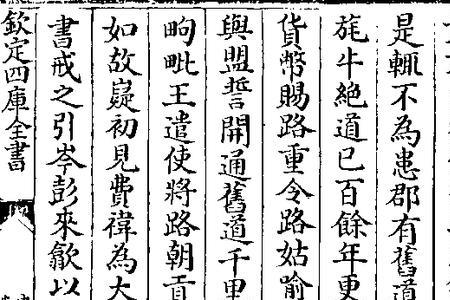 是輙不為患郡有舊道
旄牛絶道已百餘年更
貨幣賜路重令路姑喻
與盟誓開通舊道千里
昫毗王遣使將路朝貢
如故嶷初見費禕為大
書戒之引岑彭來歙以
欽定四庫全書